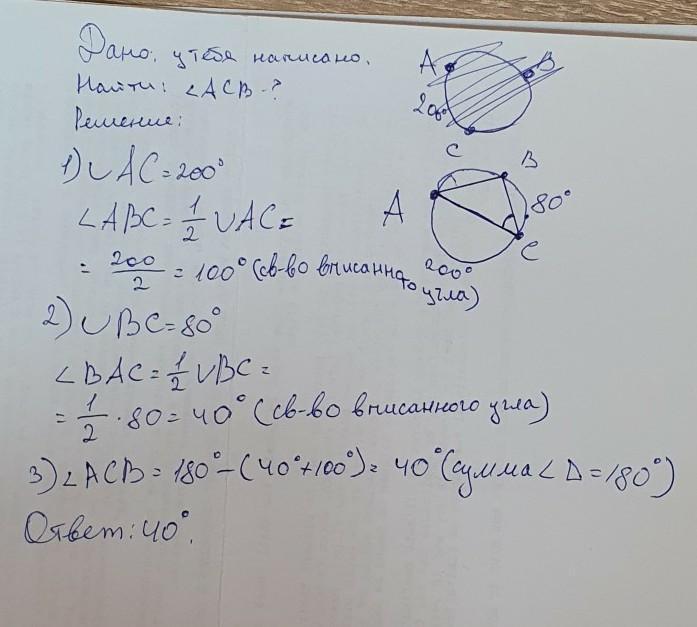 Дано: у тебя написано.
Найти: ∠ACB-?
Решение:
A
B
200°
C
1) ∪AC=200°
∠ABC=1/2 ∪AC=
=200/2=100° (св-во вписанного угла)
A
B
80°
C
200°
2) ∪BC=80°
∠BAC=1/2 ∪BC=
=1/2·80=40° (св-во вписанного угла)
3) ∠ACB=180°-(40°+100°)=40° (сумма ∠ Δ=180°)
Ответ: 40°.